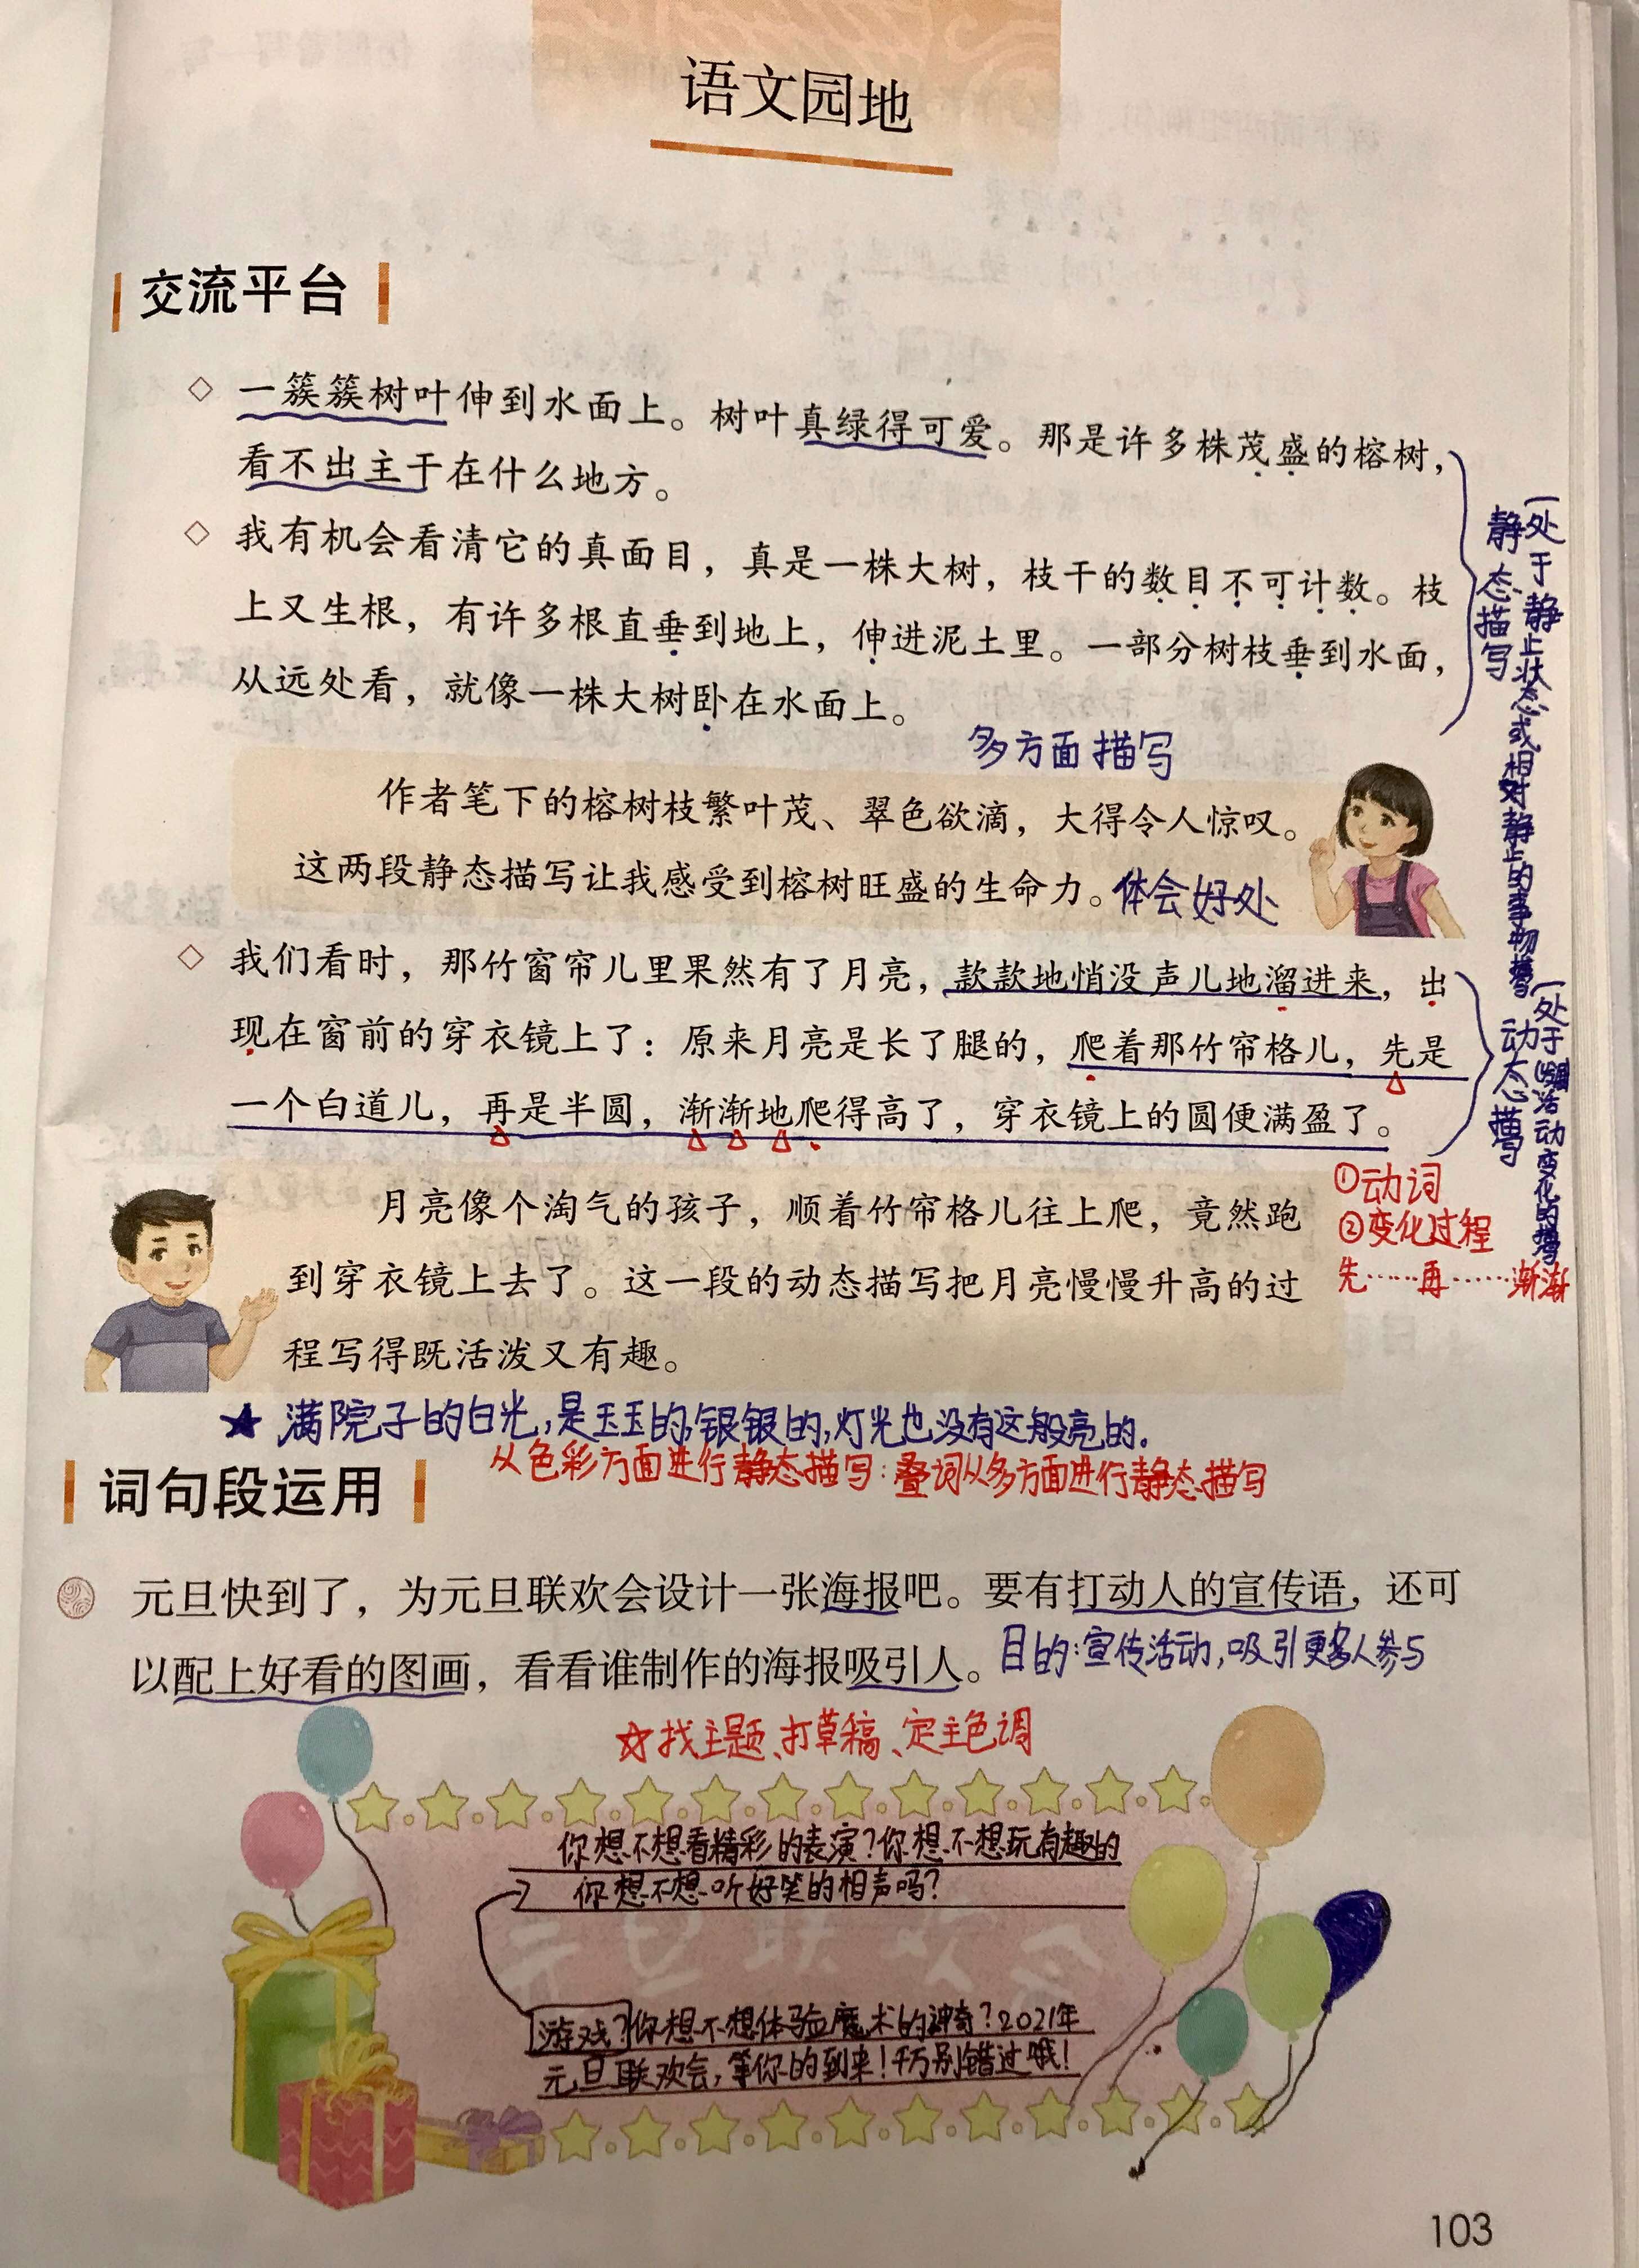 语文园地
交流平台
一簇簇树叶伸到水面上。树叶真绿得可爱。那是许多株茂盛的榕树，
看不出主干在什么地方。
我有机会看清它的真面目，真是一株大树，枝干的数目不可计数。枝
上又生根，有许多根直垂到地上，伸进泥土里。一部分树枝垂到水面，
从远处看，就像一株大树卧在水面上。
静态描写
处于静止状态或相对静止的事物描写
多方面描写
作者笔下的榕树枝繁叶茂、翠色欲滴，大得令人惊叹。
这两段静态描写让我感受到榕树旺盛的生命力。体会好处
我们看时，那竹窗帘儿里果然有了月亮，款款地悄没声儿地溜进来，出
现在窗前的穿衣镜上了：原来月亮是长了腿的，爬着那竹帘格儿，先是
一个白道儿，再是半圆，渐渐地爬得高了，穿衣镜上的圆便满盈了。
动态描写
处于活动变化的描写
①动词
②变化过程
先……再……渐渐
月亮像个淘气的孩子，顺着竹帘格儿往上爬，竟然跑
到穿衣镜上去了。这一段的动态描写把月亮慢慢升高的过
程写得既活泼又有趣。
★满院子的白光，是玉玉的，银银的，灯光也没有这般亮的。
从色彩方面进行静态描写：叠词从多方面进行静态描写
词句段运用
元旦快到了，为元旦联欢会设计一张海报吧。要有打动人的宣传语，还可
以配上好看的图画，看看谁制作的海报吸引人。目的：宣传活动，吸引更多人参与
☆找主题、打草稿、定主色调
你想不想看精彩的表演？你想不想玩有趣的
你想不想听好笑的相声吗？
元旦联欢会
游戏？你想不想体验魔术的神奇？2021年
元旦联欢会，等你的到来！千万别错过哦！
103